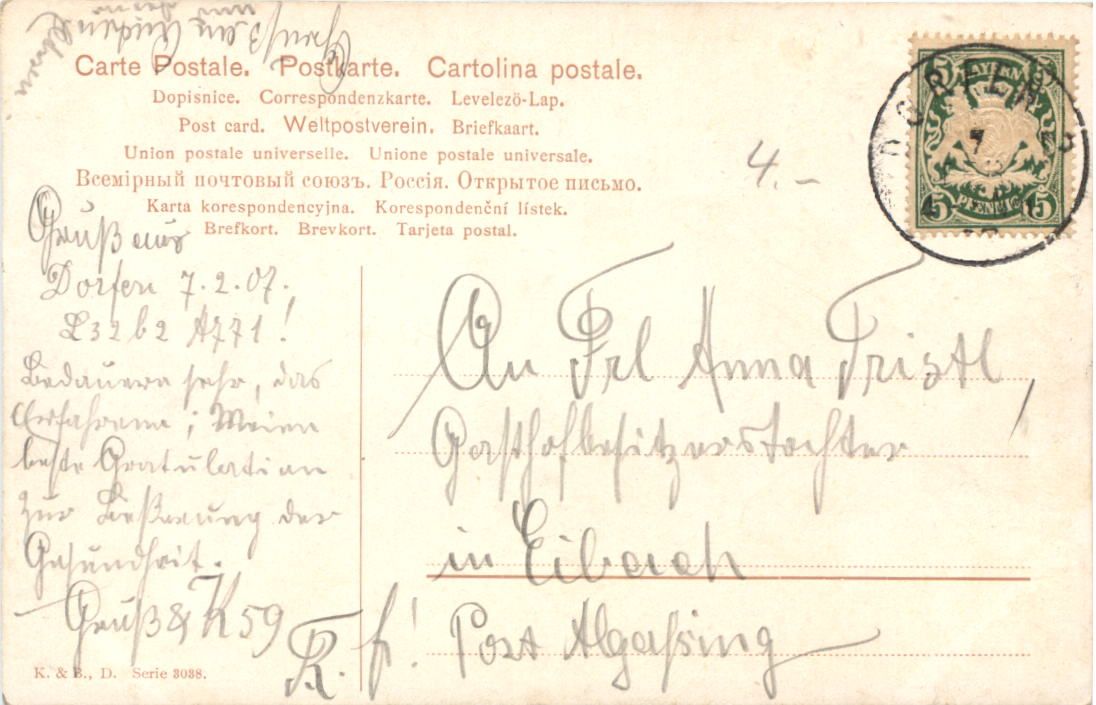 Carte Postale. Postkarte. Cartolina postale.
Dopisnice. Correspondenzkarte. Levelezö-Lap.
Post card. Weltpostverein. Briefkaart.
Union postale universelle. Unione postale universale.
Всемірный почтовый союзъ. Россія. Открытое письмо.
Karta korespondencyjna. Korespondenční lístek.
Brefkort. Brevkort. Tarjeta postal.
BAYERN
5 5
PFENNIG
DORFEN
7
4.–
Gruß aus
Dorfen 7.2.07.
L32b2 A771!
Bedauere sehr, das
Erfahrene; Meine
beste Gratulation
zur Beßerung der
Gesundheit.
Gruß & K 59
R. f!
An Frl Anna Tristl,
Gasthofbesitzerstochter
in Eibach
Post Algaßing
K. & B., D. Serie 3038.